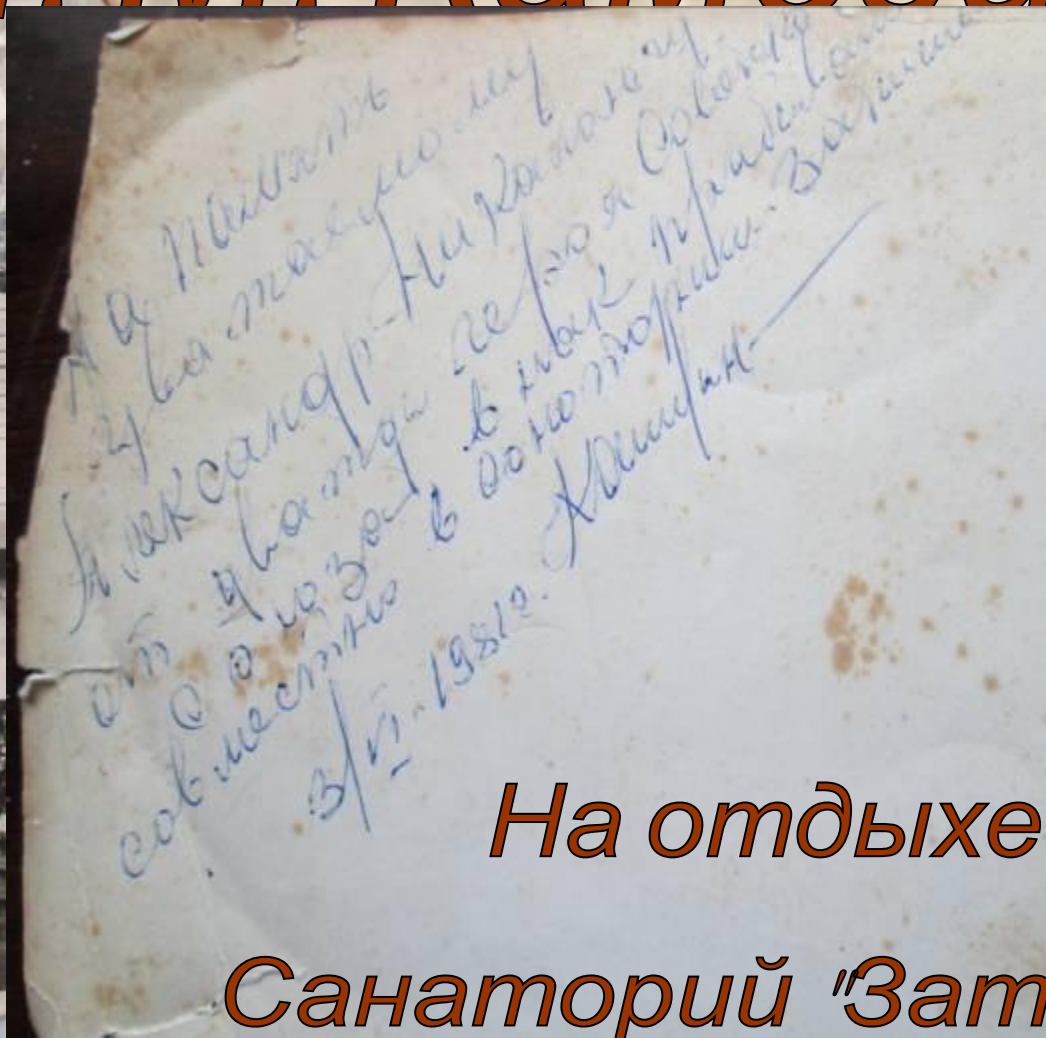 На память
уважаемому
Александр Никонович
от дважды героя Советск
Союза в знак пребыван
совместно в санатории.
3/VI-1981г.
На отдыхе
Санаторий "Зат